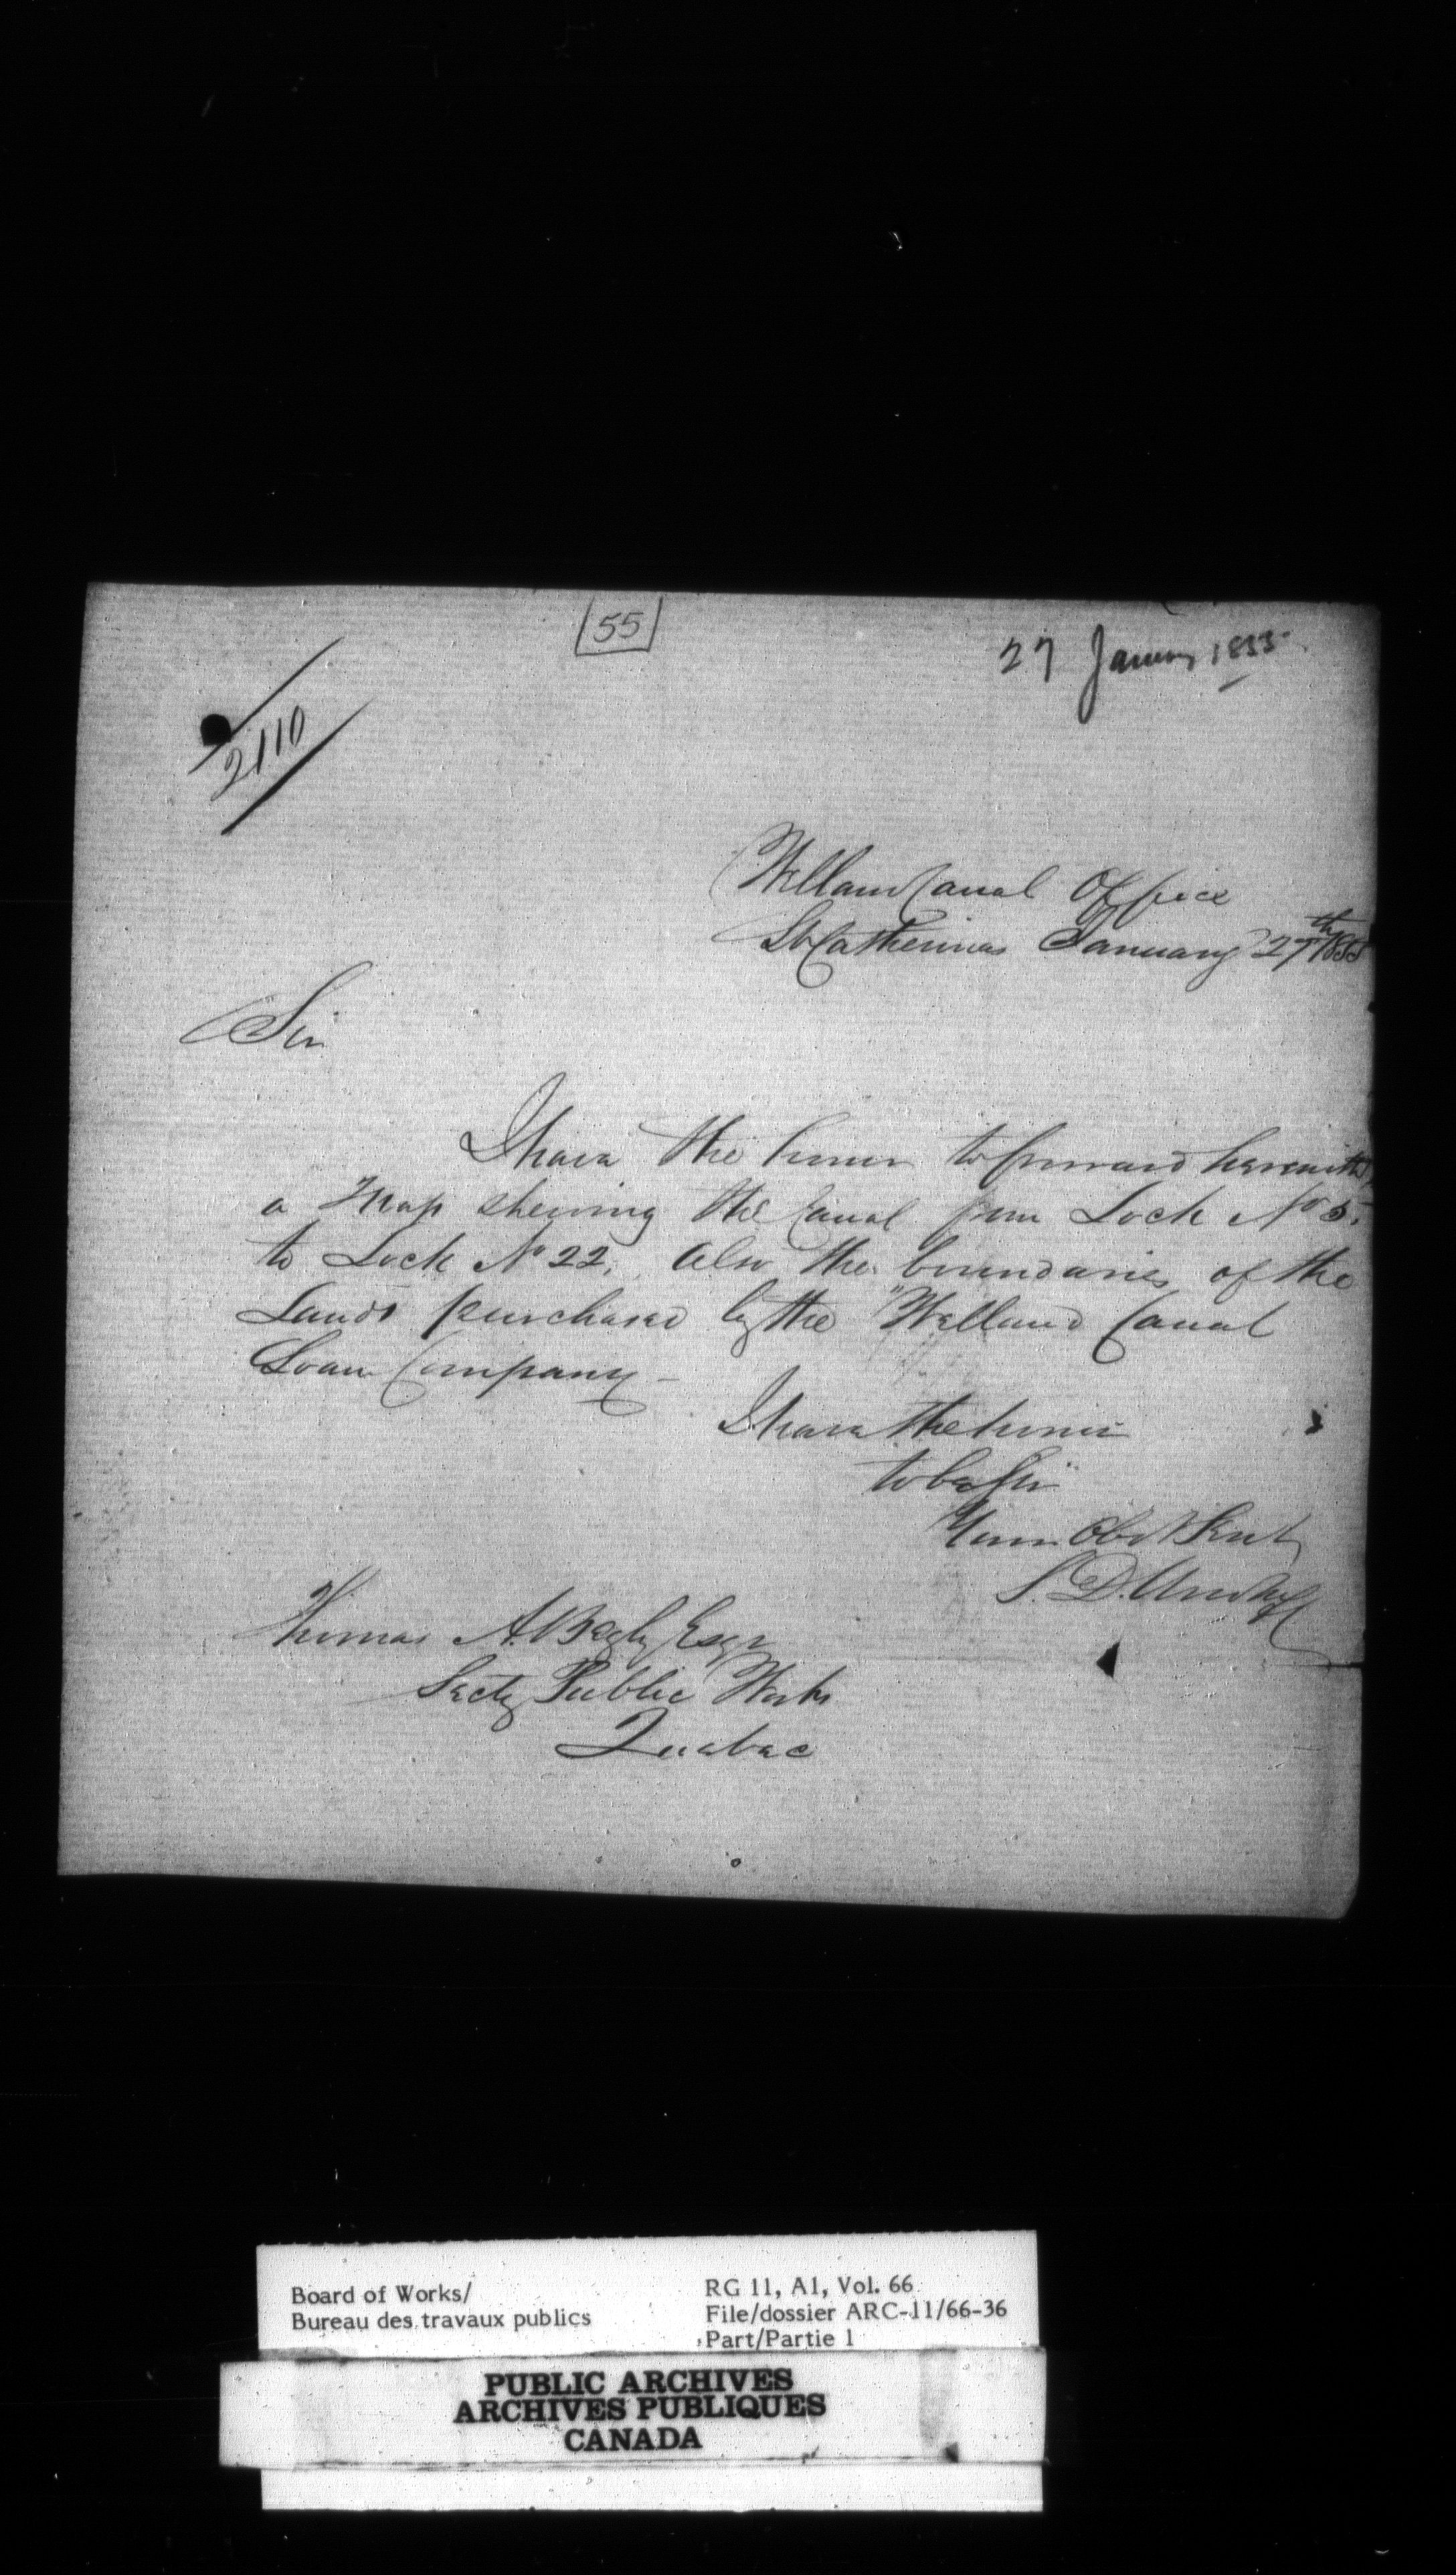 55
27 January 1853
2110
Welland Canal Office
St Catherines January 27th 1853
Sir
I have the honor to forward herewith
a Map shewing the Canal from Lock No 5.
to Lock No 22, also the boundaries of the
Lands purchased by the "Welland Canal
Loan Company –
I have the honor
to be Sir
Your Obdt Servt
S. D. Woodruff
Thomas A. Begly Esqr
Secty Public Works
Quebec
Board of Works/
Bureau des travaux publics
RG 11, A1, Vol. 66
File/dossier ARC-11/66-36
Part/Partie 1
PUBLIC ARCHIVES
ARCHIVES PUBLIQUES
CANADA